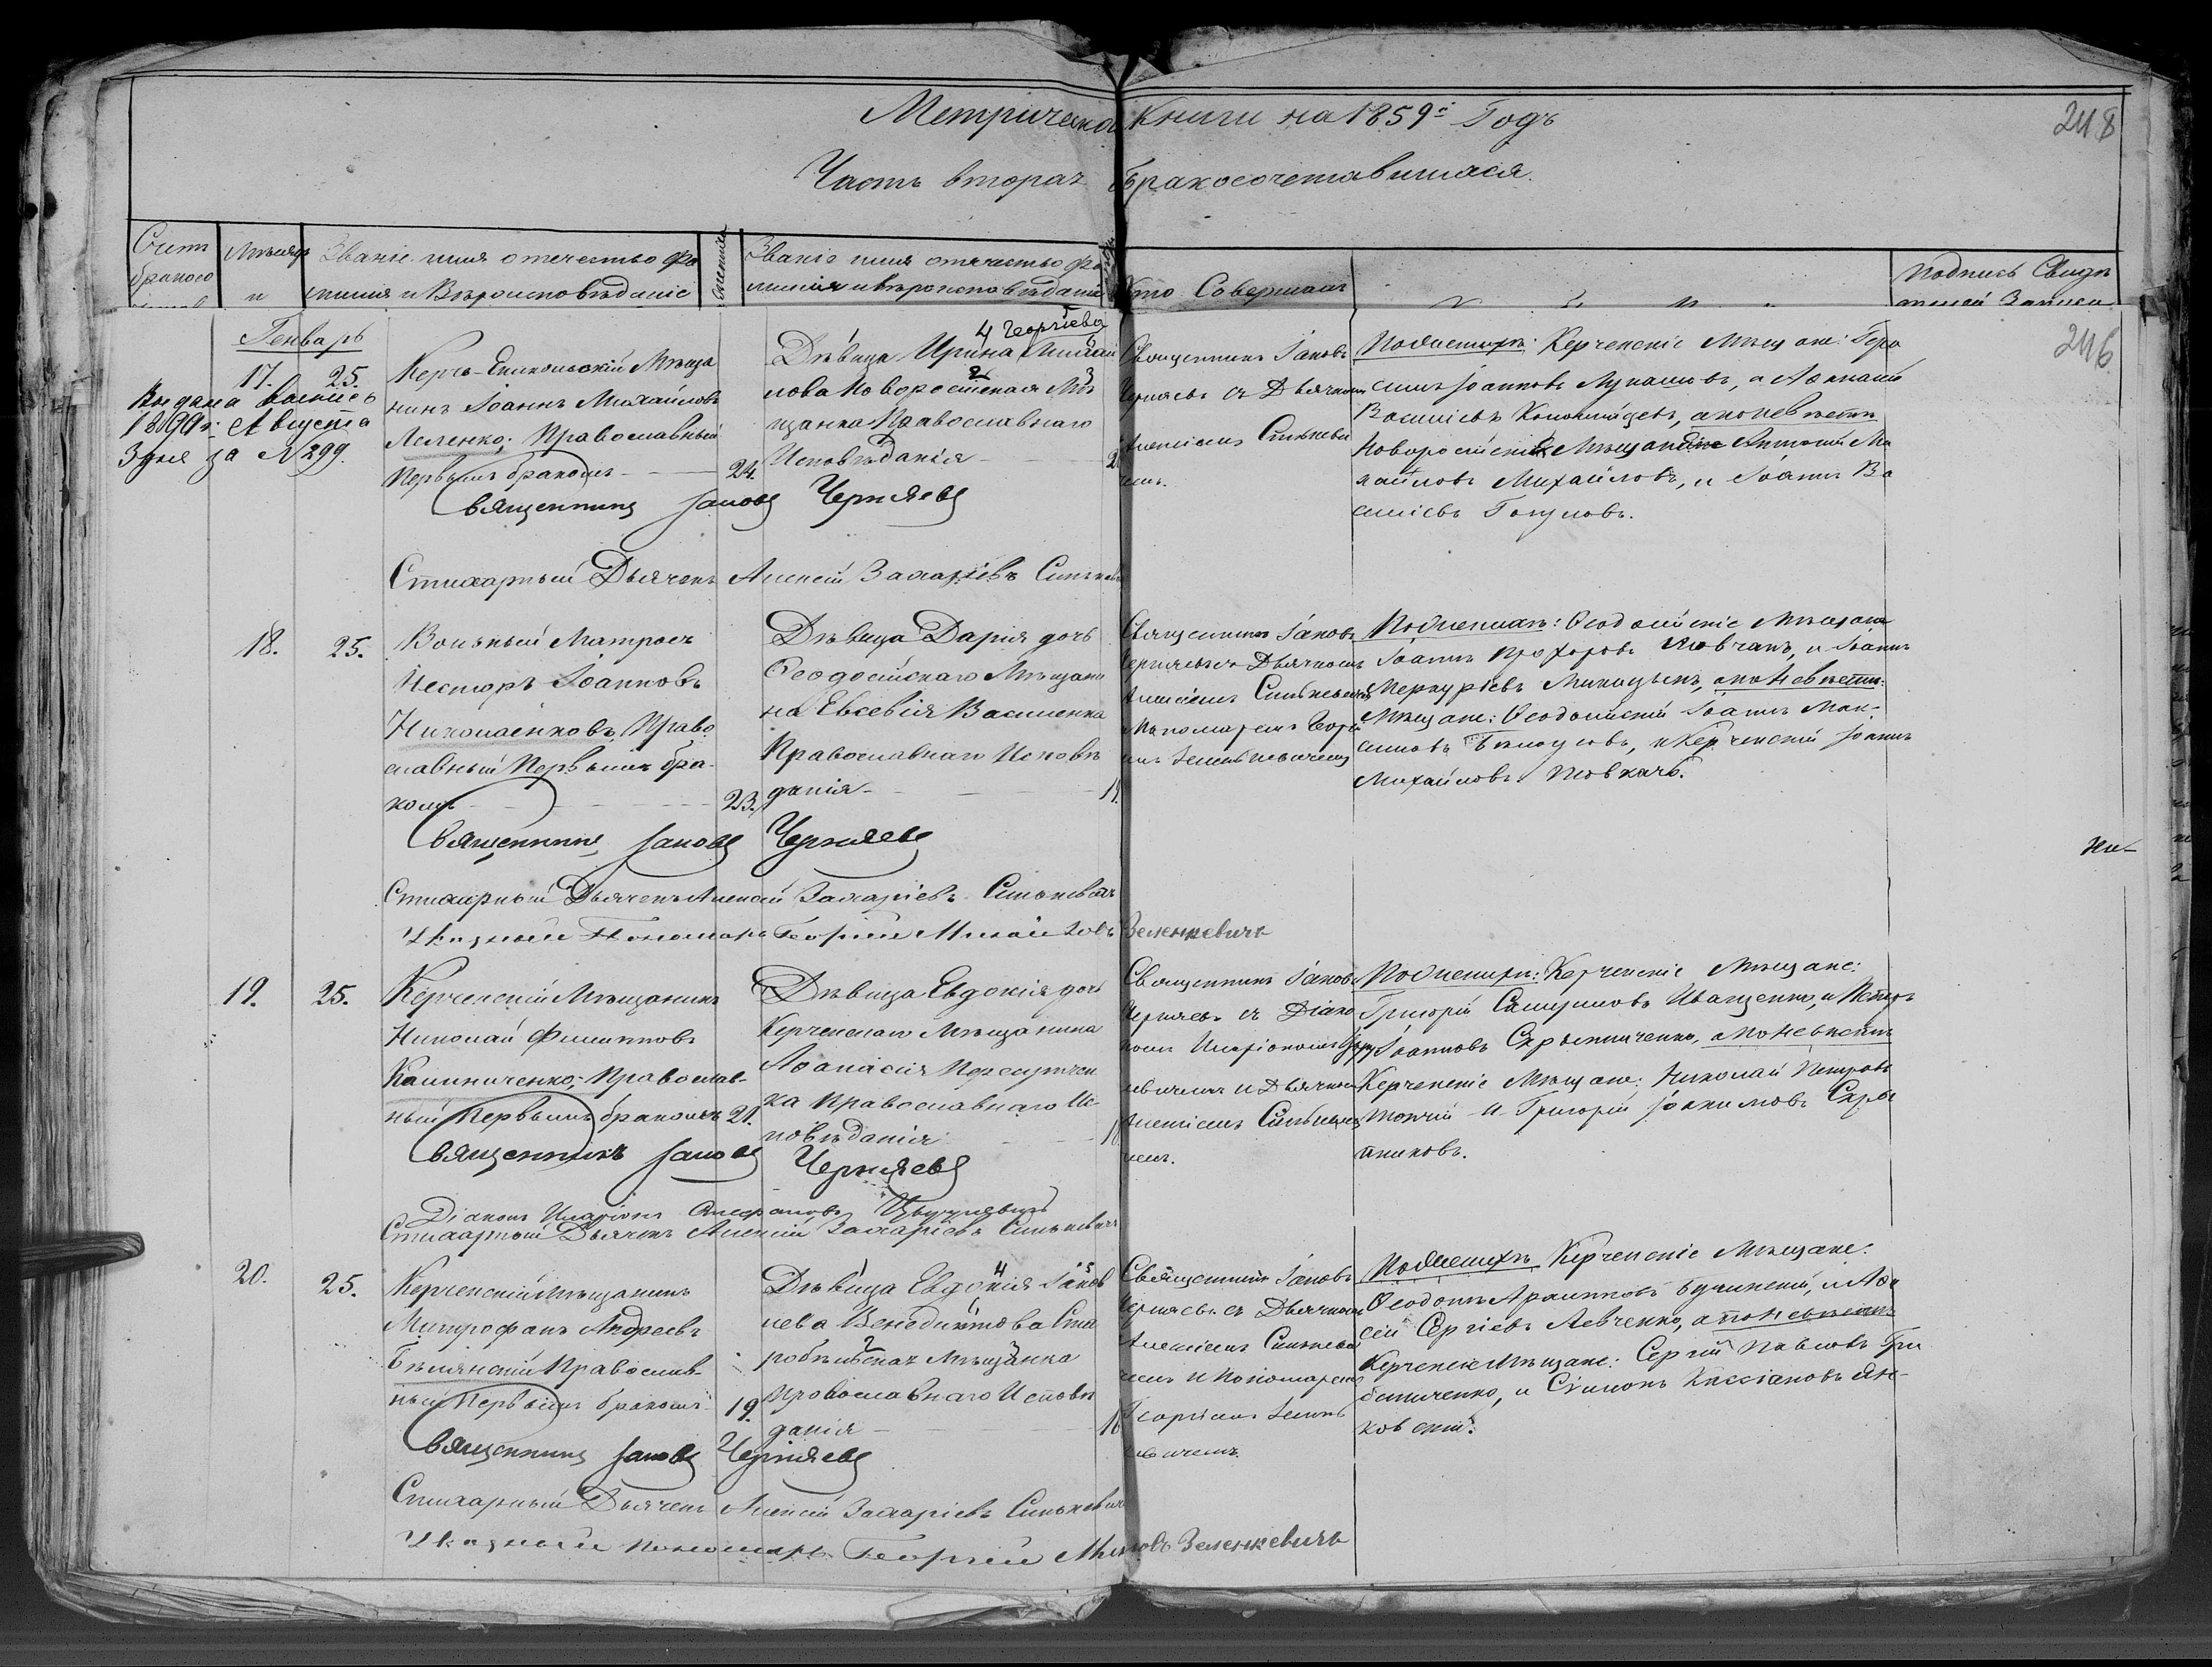 Метрической Книги на 1859й Годъ
248
Часть вторая Бракосочетавшиася.
Счетъ
брако со
Мѣсяцъ
и
Званіе имя отчество фа
милия и Вѣроисповѣданіе
Званіе имя отчество фа
милія и вѣроисповѣданіе
Кто Совершалъ
Подпись Свидѣ
телей Записи
246
Генварь
17. 25.
Выдана выпись
1899 г. Августа
3 дня за №299.
Керчь-Еникольскій Мѣща
нинъ Іоаннъ Михайловъ
Леленко; Православный
Первымъ бракомъ 24.
4 Георгіева
Дѣвица Ирина Михай
лова Новоросійская Мѣ
щанка Православнаго
Исповѣданія
Священникъ Іаковъ
Черняевъ съ Дьячкомъ
Алексіемъ Синькеви
чемъ.
Поженихѣ: Керченскіе Мѣщане: Гера
симъ Іоанновъ Лукашовъ, и Афанасій
Василіевъ, апоневѣстѣ
Новоросійскіе Мѣщане Антоній Ми
хайловъ Михайловъ, и Іоаннъ Ва
силіевъ.
Священникъ Іаковъ Черняевъ
Стихарный Дьячекъ Алексій Захаріевъ Синькевичъ
18. 25.
Вольный Матросъ
Несторъ Іоанновъ
Николаенковъ, Право
славный Первымъ бра
комъ 23.
Дѣвица Дарія дочь
Феодосійскаго Мѣщани
на Евсевія Василенка
Православнаго Исповѣ
данія
Священникъ Іаковъ
Черняевъ съ Дьячкомъ
Алексіемъ Синькевичемъ
и Пономаремъ Георгі
емъ Зеленькевичемъ
Поженихѣ: Феодосійскіе Мѣщане
Іоаннъ Прохоровъ, и Іоаннъ
Меркуріевъ, апоневѣстѣ:
Мѣщане: Феодосійскій Іоаннъ Мак-
симовъ, и Керченскій Іоаннъ
Михайловъ Товкачь.
Священникъ Іаковъ Черняевъ
Ни-
Стихарный Дьячекъ Алексій Захаріевъ Синькевичъ
Указный Пономарь Георгій Михайловъ Зеленкевичъ
19. 25.
Керченскій Мѣщанинъ
Николай Филипповъ
Калиниченко; Православ-
ный Первымъ бракомъ 21.
Дѣвица Евдокія дочь
Керченскаго Мѣщанина
Афанасія
ка Православнаго Ис-
повѣданія
Священникъ Іаковъ
Черняевъ съ Діако
номъ Иларіономъ
и Дьячкомъ
Алексіемъ Синькеви
чемъ.
Поженихѣ: Керченскіе Мѣщане:
Григорій Иващенко, и Петръ
Іоанновъ Скрыпниченко, апоневѣстѣ
Керченскіе Мѣщане: Николай Петровъ
и Григорій Іоакимовъ Скры
пниковъ.
Священникъ Іаковъ Черняевъ
Діаконъ Иларіонъ Стефановъ
Стихарный Дьячекъ Алексій Захаріевъ Синькевичъ
20. 25.
Керченскій Мѣщанинъ
Митрофанъ Андреевъ
Бѣлянскій Православ-
ный Первымъ бракомъ 19.
4 5
Дѣвица Евдокія Іаков
лева Бенедиктова Ста
2 3
робѣльская Мѣщанка
Православнаго Исповѣ
данія
Священникъ Іаковъ
Черняевъ съ Дьячкомъ
Алексіемъ Синькеви
чемъ и Пономаремъ
Георгіемъ Зеленъ
кевичемъ.
Поженихѣ Керченскіе Мѣщане:
Феодотъ, и Але
сій Сергіевъ Левченко, апоневѣстѣ
Керченскіе Мѣщане: Сергій Павловъ Гри
бениченко, и Симонъ Кассіановъ Ян-
ковскій.
Священникъ Іаковъ Черняевъ
Стихарный Дьячекъ Алексій Захаріевъ Синькевичъ
Указный Пономарь Георгій Мих-ловъ Зеленкевичъ